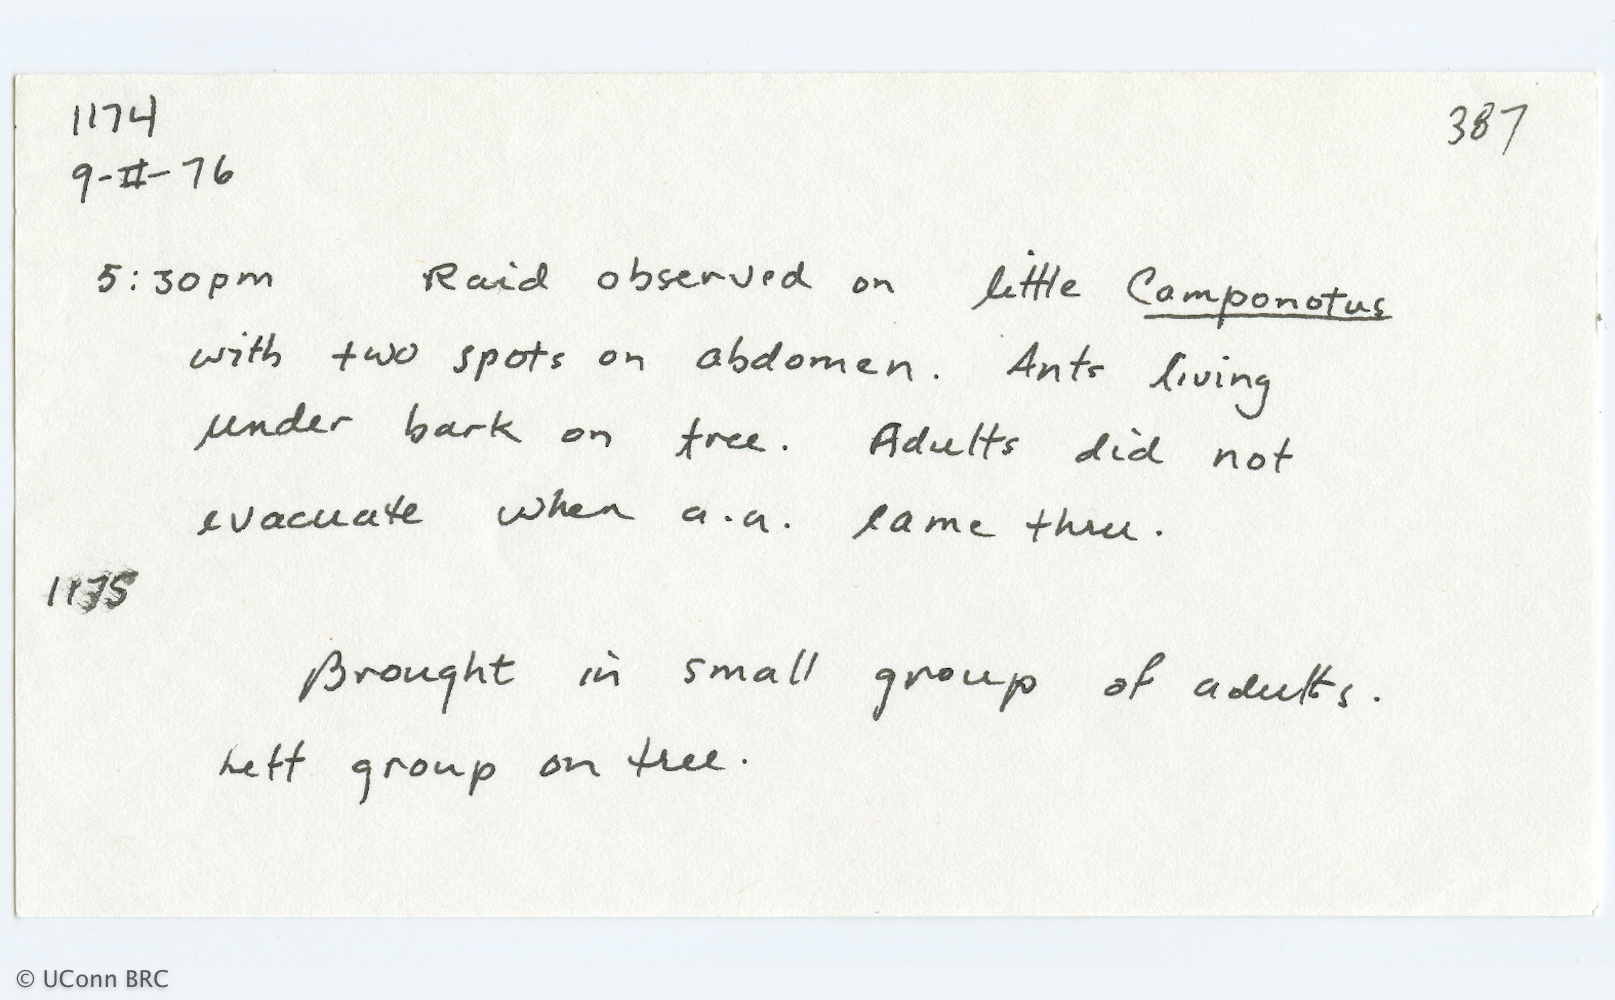 1174
387
9-II-76
5:30pm Raid observed on little Camponotus
with two spots on abdomen. Ants living
under bark on tree. Adults did not
evacuate when a.a. came thru.
1175
Brought in small group of adults.
Left group on tree.
© UConn BRC